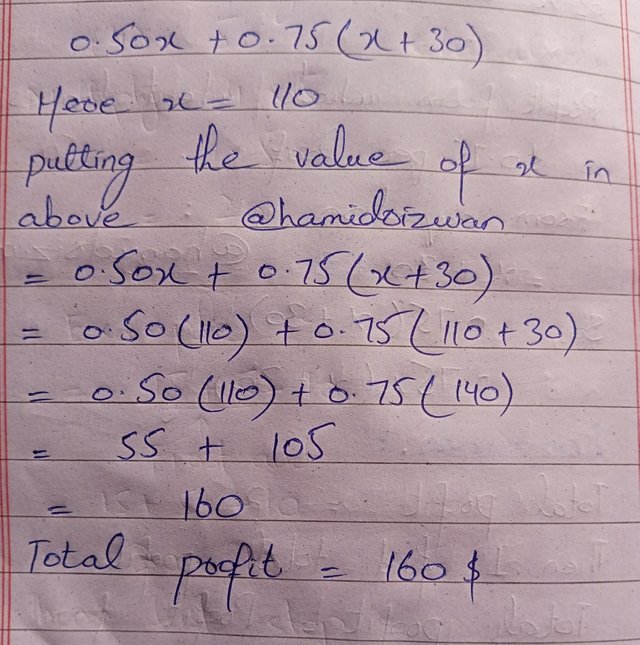 0.50x + 0.75(x+30)
Here x = 110
putting the value of x in
above @hamidrizwan
= 0.50x + 0.75(x+30)
= 0.50(110) + 0.75(110+30)
= 0.50(110) + 0.75(140)
= 55 + 105
= 160
Total profit = 160 $